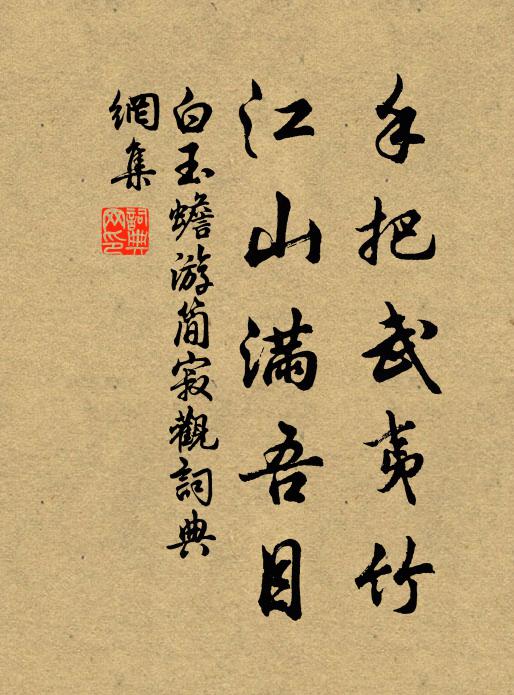 手把武夷竹
江山滿吾目
白玉蟾游簡寂觀詞典
網集
詞典
网印